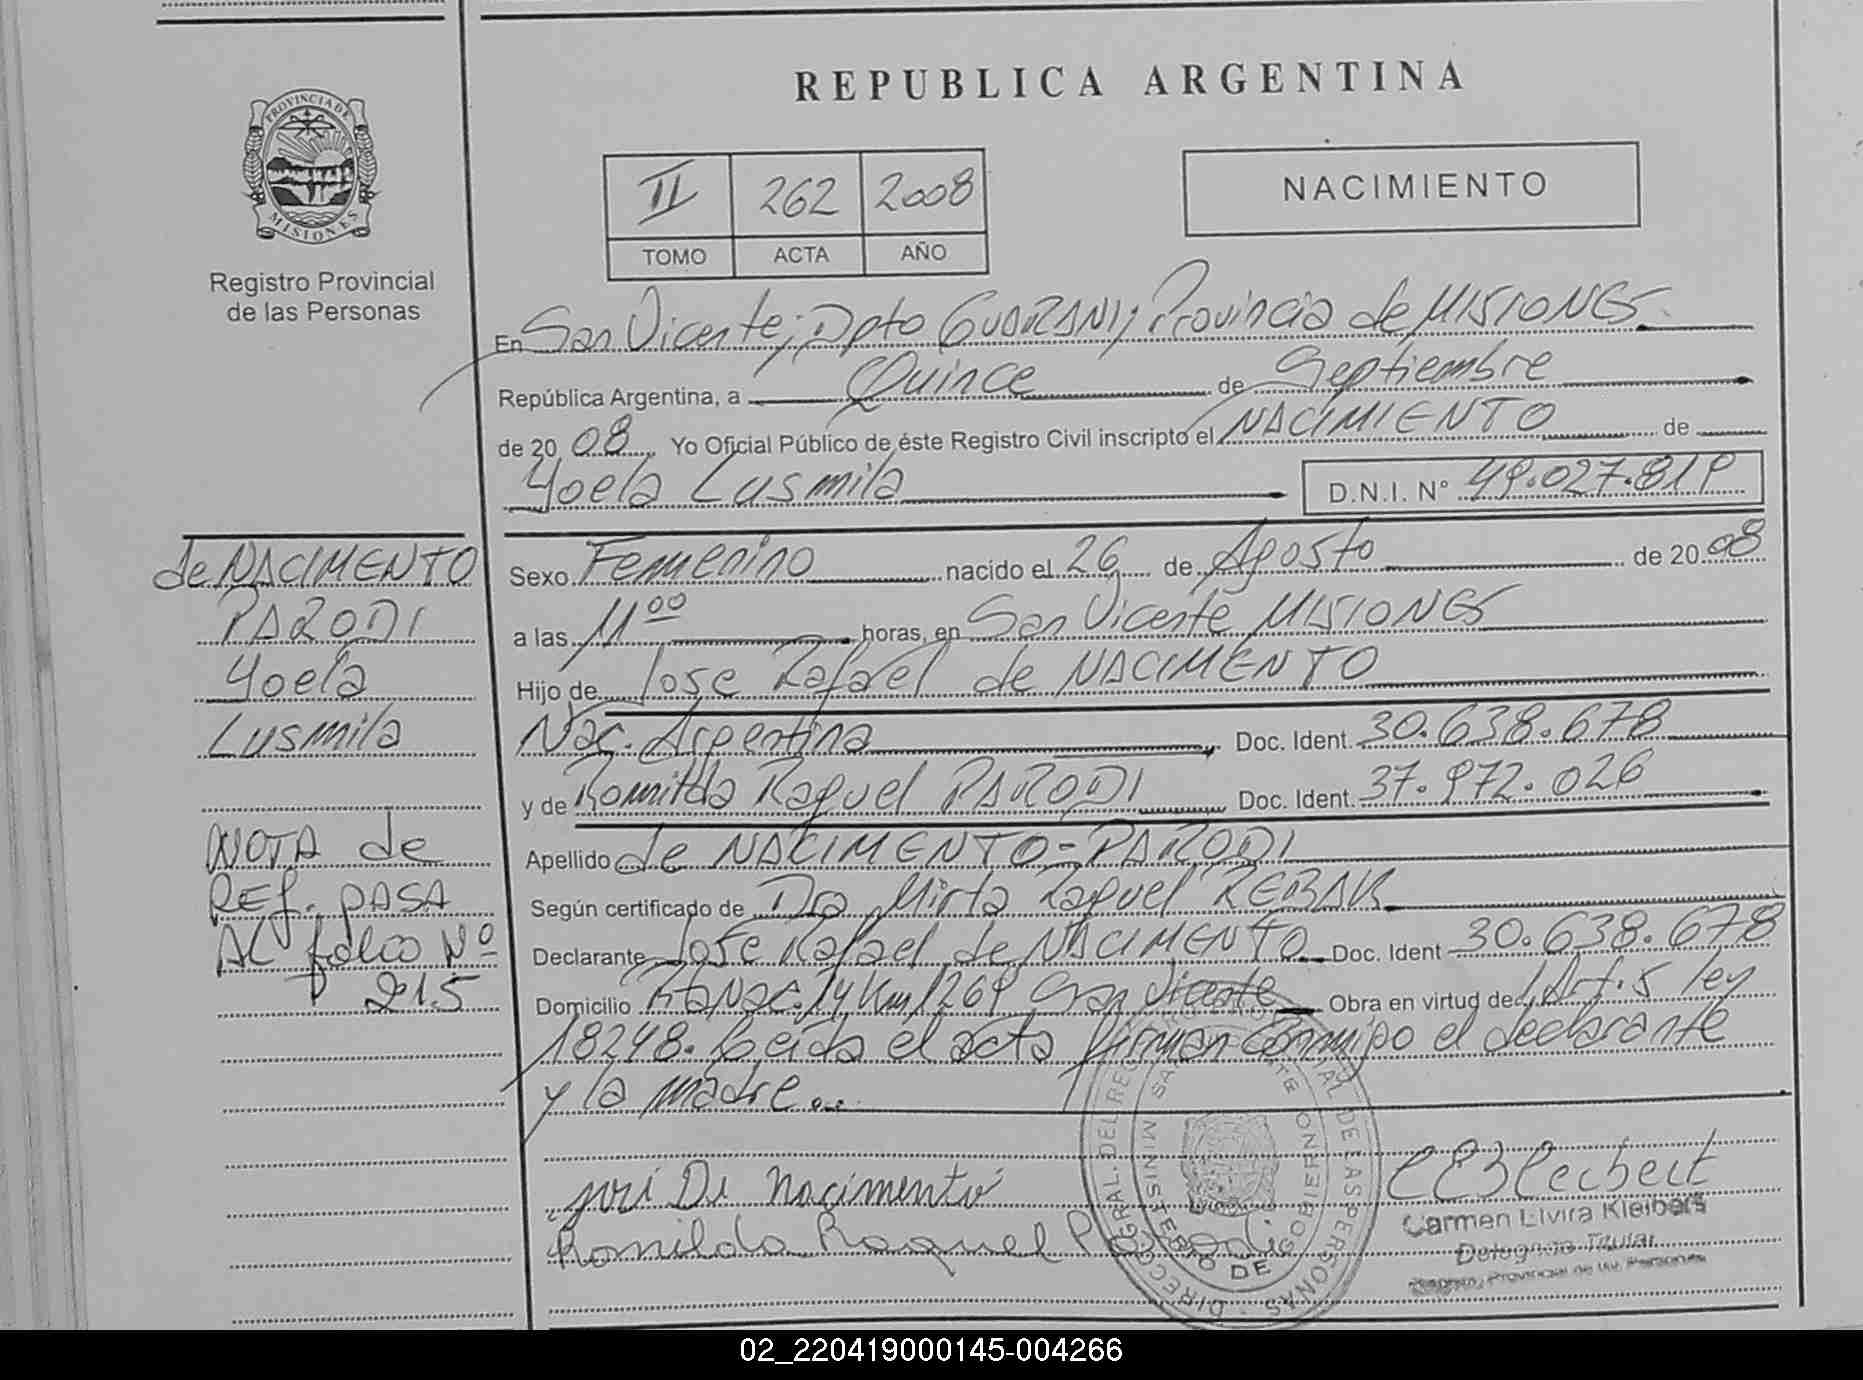 REPUBLICA ARGENTINA
PROVINCIA DE
MISIONES
Registro Provincial
de las Personas
II 262 2008
TOMO ACTA AÑO
NACIMIENTO
En San Vicente; Dpto GUARANI, Provincia de MISIONES
República Argentina, a Quince de Septiembre
de 20 08 Yo Oficial Público de éste Registro Civil inscripto el NACIMIENTO de
Yoela Lusmila D.N.I. N° 49.027.819
Sexo Femenino nacido el 26 de Agosto de 20 08
a las 11 00 horas, en San Vicente MISIONES
Hijo de Jose Rafael de NACIMENTO
Nac. Argentina Doc. Ident. 30.638.678
y de Romilda Raquel PARODI Doc. Ident. 37.972.026
Apellido de NACIMENTO-PARODI
Según certificado de Dra Mirta Raquel
Declarante Jose Rafael de NACIMENTO Doc. Ident 30.638.678
Domicilio Rta Nac. 14 Km 1269 San Vicente Obra en virtud de Art. 5 ley
18248. Leida el acta firman conmigo el declarante
y la madre...
de NACIMENTO
PARODI
Yoela
Lusmila
NOTA de
REF. PASA
AL folio Nº
215
José De Nacimento
Romilda Raquel Parodi
Carmen Elvira Kleibers
Delegada Titular
Registro Provincial de las Personas
DIRECC. GRAL. DEL REG. PROVINCIAL DE LAS PERSONAS
MINISTERIO DE GOBIERNO
SAN VICENTE
02_220419000145-004266